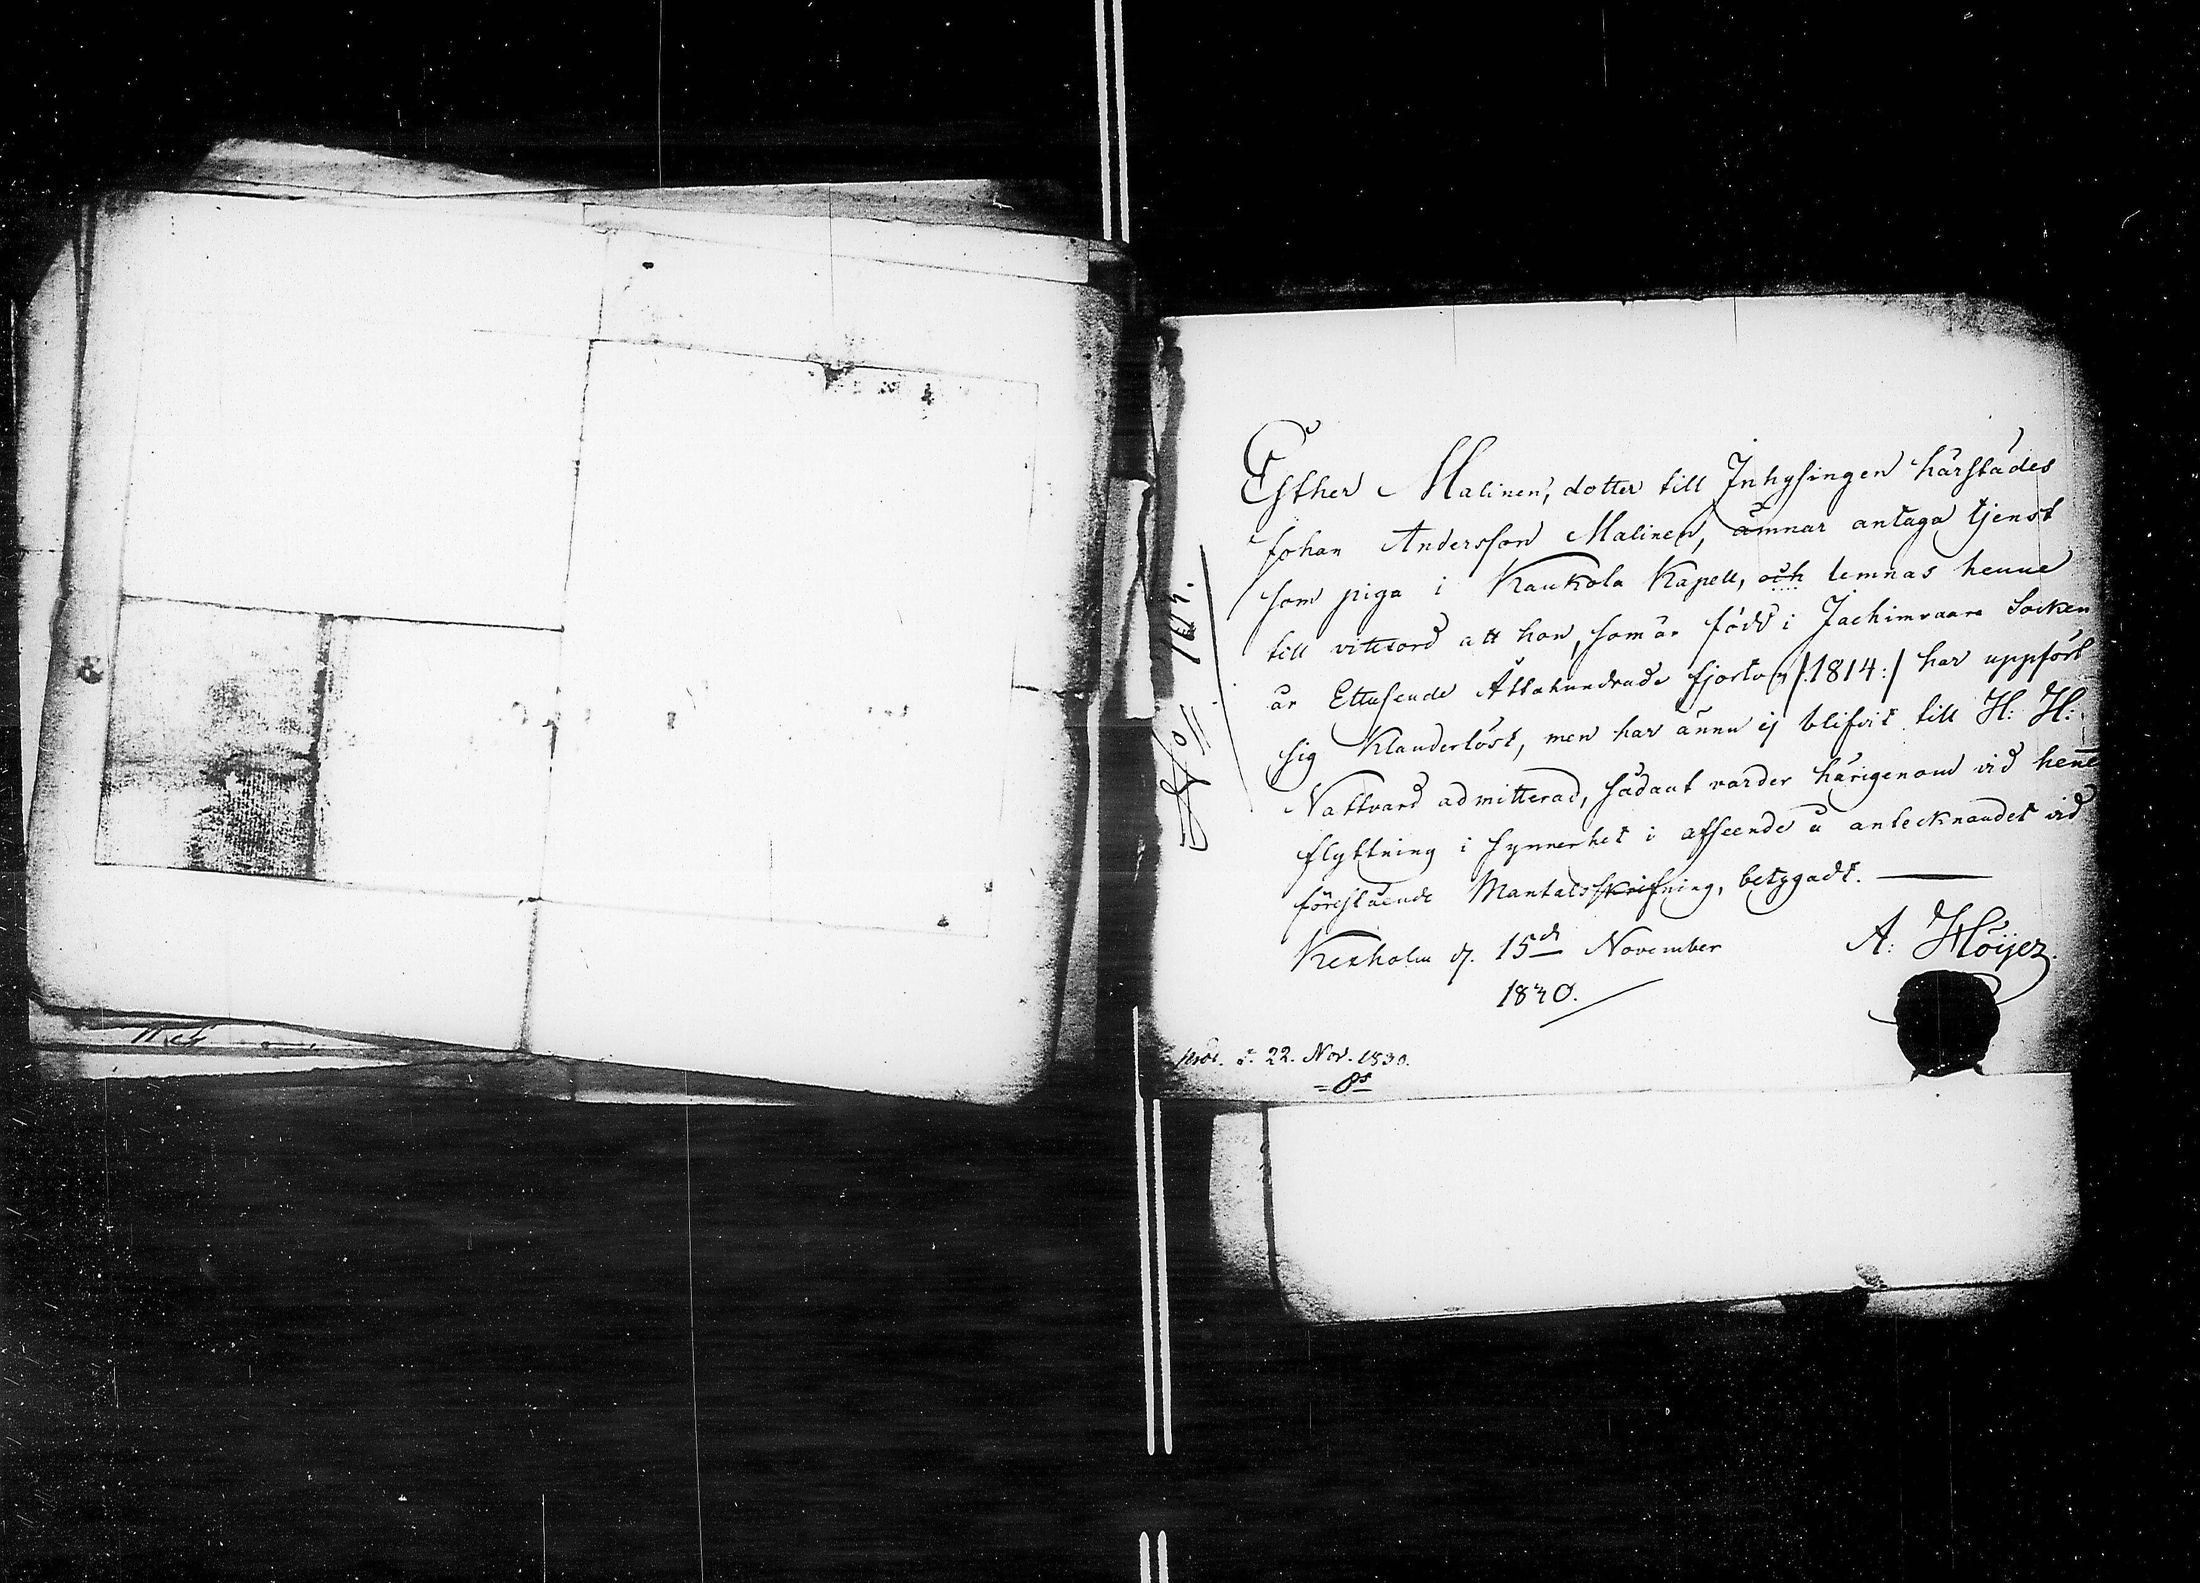 Esther Malinen, dotter till Inhysingen härstädes
Johan Andersson Malinen, ämnar antaga tjenst
som piga i Kaukola Kapell, och lemnas henne
till vittsord att hon, som är född i Jachimvaara Socken
år Ettusende Åttahundrade fjorton /:1814:/ har uppfört
sig Klanderlöst, men har ännu ej blifvit till H: H:
Nattvard admitterad, sådant varder härigenom vid henns
flyttning i synnerhet i afseende å antecknandet vid
förestående Mantalsskrifning, betygadt. —
Kexholm d. 15de November
A: Höijer.
1830.
d. 22. Nov. 1830.